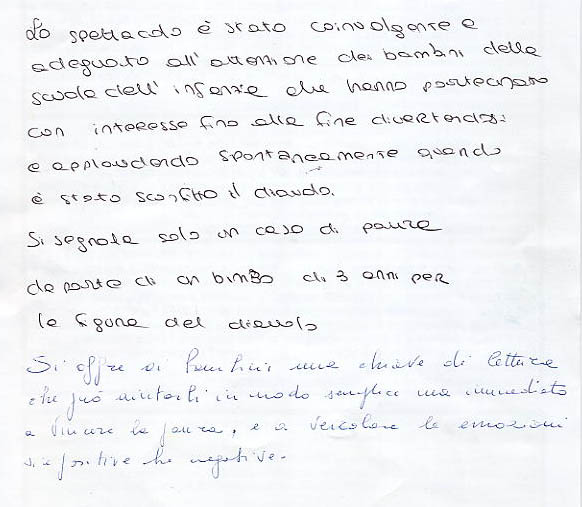 Lo spettacolo è stato coinvolgente e
adeguato all'attenzione dei bambini della
scuola dell'infanzia che hanno partecipato
con interesse fino alla fine divertendosi
e applaudendo spontaneamente quando
è stato sconfitto il diavolo.
Si segnala solo un caso di paura
da parte di un bimbo di 3 anni per
la figura del diavolo
Si offre ai bambini una chiave di lettura
che può aiutarli in modo semplice ma immediato
a vincere la paura, e a veicolare le emozioni
sia positive che negative.